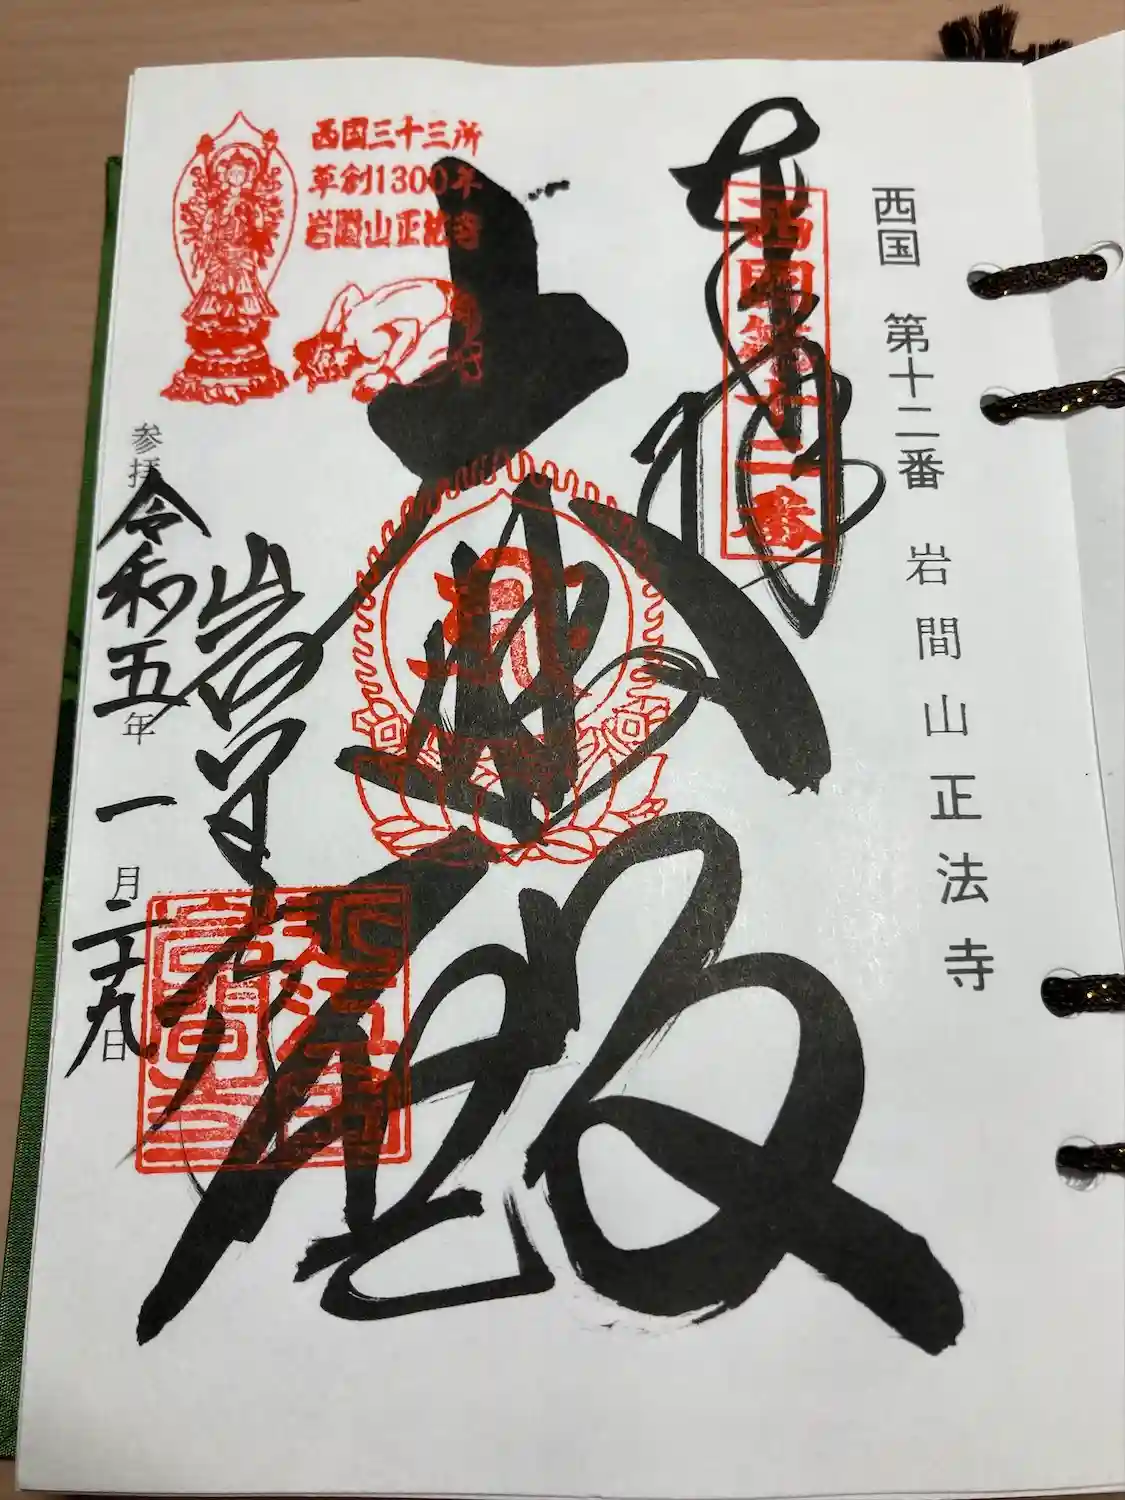 西国 第十二番 岩間山正法寺
奉拝
西国第十二番
大悲殿
西国三十三所
草創1300年
岩間山正法寺
岩間寺
参拝
令和五年一月二十九日